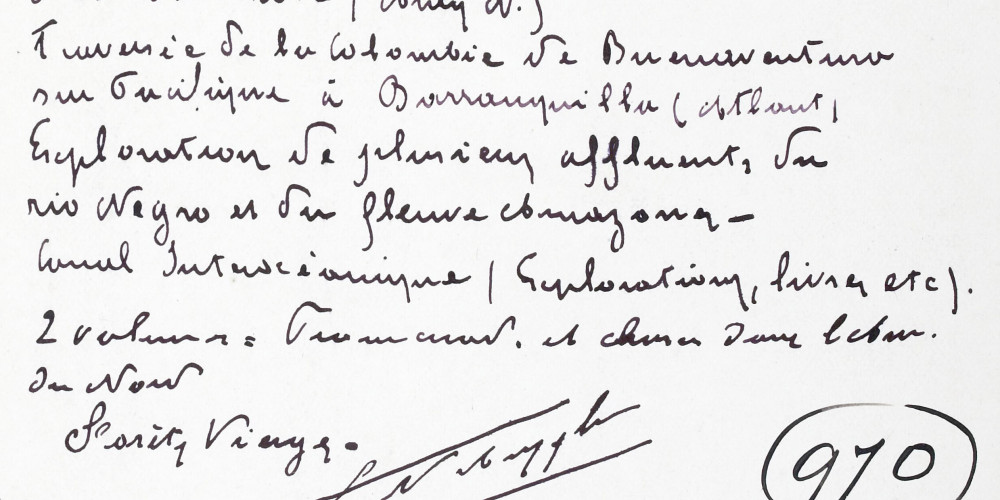 Traversée de la Colombie de Buenaventura
sur Pacifique à Barranquilla (Atlant)
Exploration de plusieurs affluents du
rio Negro et du fleuve Amazones -
Canal Interocéanique (Explorations, livres etc).
2 volumes = et chasses dans l'Am.
du Nord
Forêts Vierges.
970